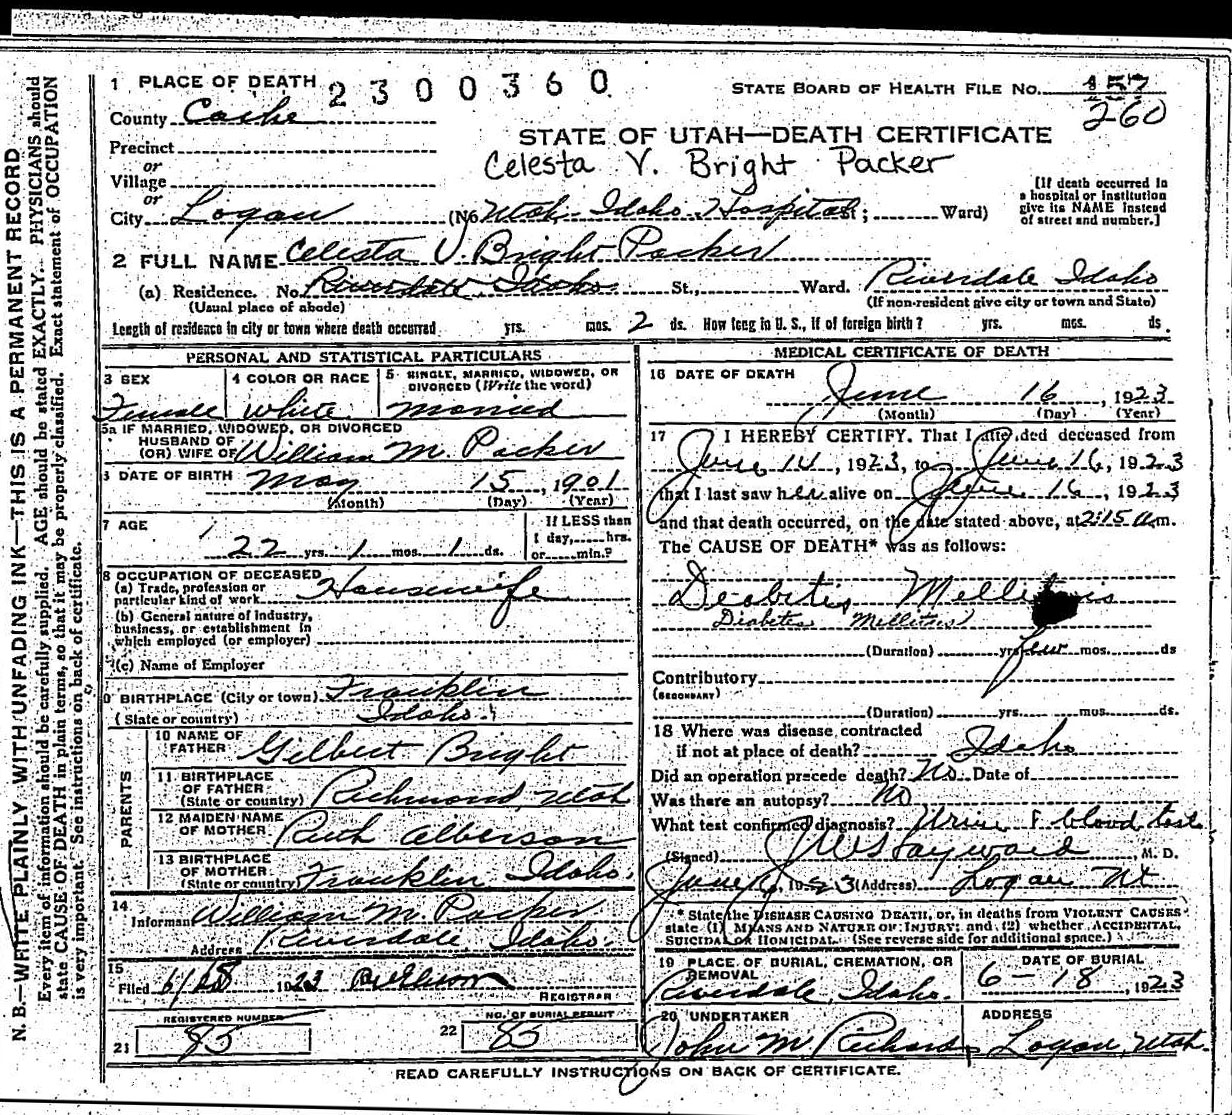 1 PLACE OF DEATH 2300360
STATE BOARD OF HEALTH FILE NO. 157
260
County Cache
STATE OF UTAH—DEATH CERTIFICATE
Precinct
Celesta V. Bright Packer
or
Village
or
City Logan (No Utah Idaho Hospital St; Ward)
[If death occurred in
a hospital or institution
give its NAME instead
of street and number.]
2 FULL NAME Celesta V. Bright Packer
(a) Residence. No. Riverdale, Idaho St., Ward. Riverdale Idaho
(Usual place of abode) (If non-resident give city or town and State)
Length of residence in city or town where death occurred yrs. mos. 2 ds. How long in U. S., if of foreign birth? yrs. mos. ds.
PERSONAL AND STATISTICAL PARTICULARS
3 SEX 4 COLOR OR RACE 5 SINGLE, MARRIED, WIDOWED, OR
DIVORCED (Write the word)
Female White Married
5a IF MARRIED, WIDOWED, OR DIVORCED
HUSBAND OF
(OR) WIFE OF William M. Packer
6 DATE OF BIRTH May 15, 1901
(Month) (Day) (Year)
7 AGE 22 yrs. 1 mos. 1 ds.
If LESS than
1 day, hrs.
or min.?
8 OCCUPATION OF DECEASED
(a) Trade, profession or
particular kind of work Housewife
(b) General nature of Industry,
business, or establishment in
which employed (or employer)
(c) Name of Employer
9 BIRTHPLACE (City or town) Franklin
(State or country) Idaho.
PARENTS
10 NAME OF
FATHER Gilbert Bright
11 BIRTHPLACE
OF FATHER
(State or country) Richmond, Utah
12 MAIDEN NAME
OF MOTHER Ruth Alberson
13 BIRTHPLACE
OF MOTHER
(State or country) Franklin Idaho.
14
Informant William M. Packer
Address Riverdale, Idaho.
15
Filed 6/18 1923
REGISTRAR
REGISTERED NUMBER NO. OF BURIAL PERMIT
21 85 22 85
MEDICAL CERTIFICATE OF DEATH
16 DATE OF DEATH
June 16, 1923
(Month) (Day) (Year)
17 I HEREBY CERTIFY, That I attended deceased from
June 14, 1923, to June 16, 1923
that I last saw her alive on June 16, 1923
and that death occurred, on the date stated above, at 2:15 a.m.
The CAUSE OF DEATH* was as follows:
Diabetis Mellitus
Diabetes Mellitus
(Duration) yrs few mos. ds
Contributory
(SECONDARY)
(Duration) yrs. mos. ds.
18 Where was disease contracted
if not at place of death? Idaho
Did an operation precede death? No Date of
Was there an autopsy? No
What test confirmed diagnosis? Urine & blood test
(Signed) Hayward, M. D.
June 1923 (Address) Logan Ut
* State the DISEASE CAUSING DEATH, or, in deaths from VIOLENT CAUSES
state (1) MEANS AND NATURE OF INJURY; and (2) whether ACCIDENTAL,
SUICIDAL OR HOMICIDAL. (See reverse side for additional space.)
19 PLACE OF BURIAL, CREMATION, OR
REMOVAL
Riverdale, Idaho.
DATE OF BURIAL
6-18, 1923
20 UNDERTAKER ADDRESS
John M Richards, Logan, Utah.
READ CAREFULLY INSTRUCTIONS ON BACK OF CERTIFICATE.
N. B.—WRITE PLAINLY WITH UNFADING INK—THIS IS A PERMANENT RECORD
Every item of information should be carefully supplied. AGE should be stated EXACTLY. PHYSICIANS should
state CAUSE OF DEATH in plain terms, so that it may be properly classified. Exact statement of OCCUPATION
is very important. See instructions on back of certificate.